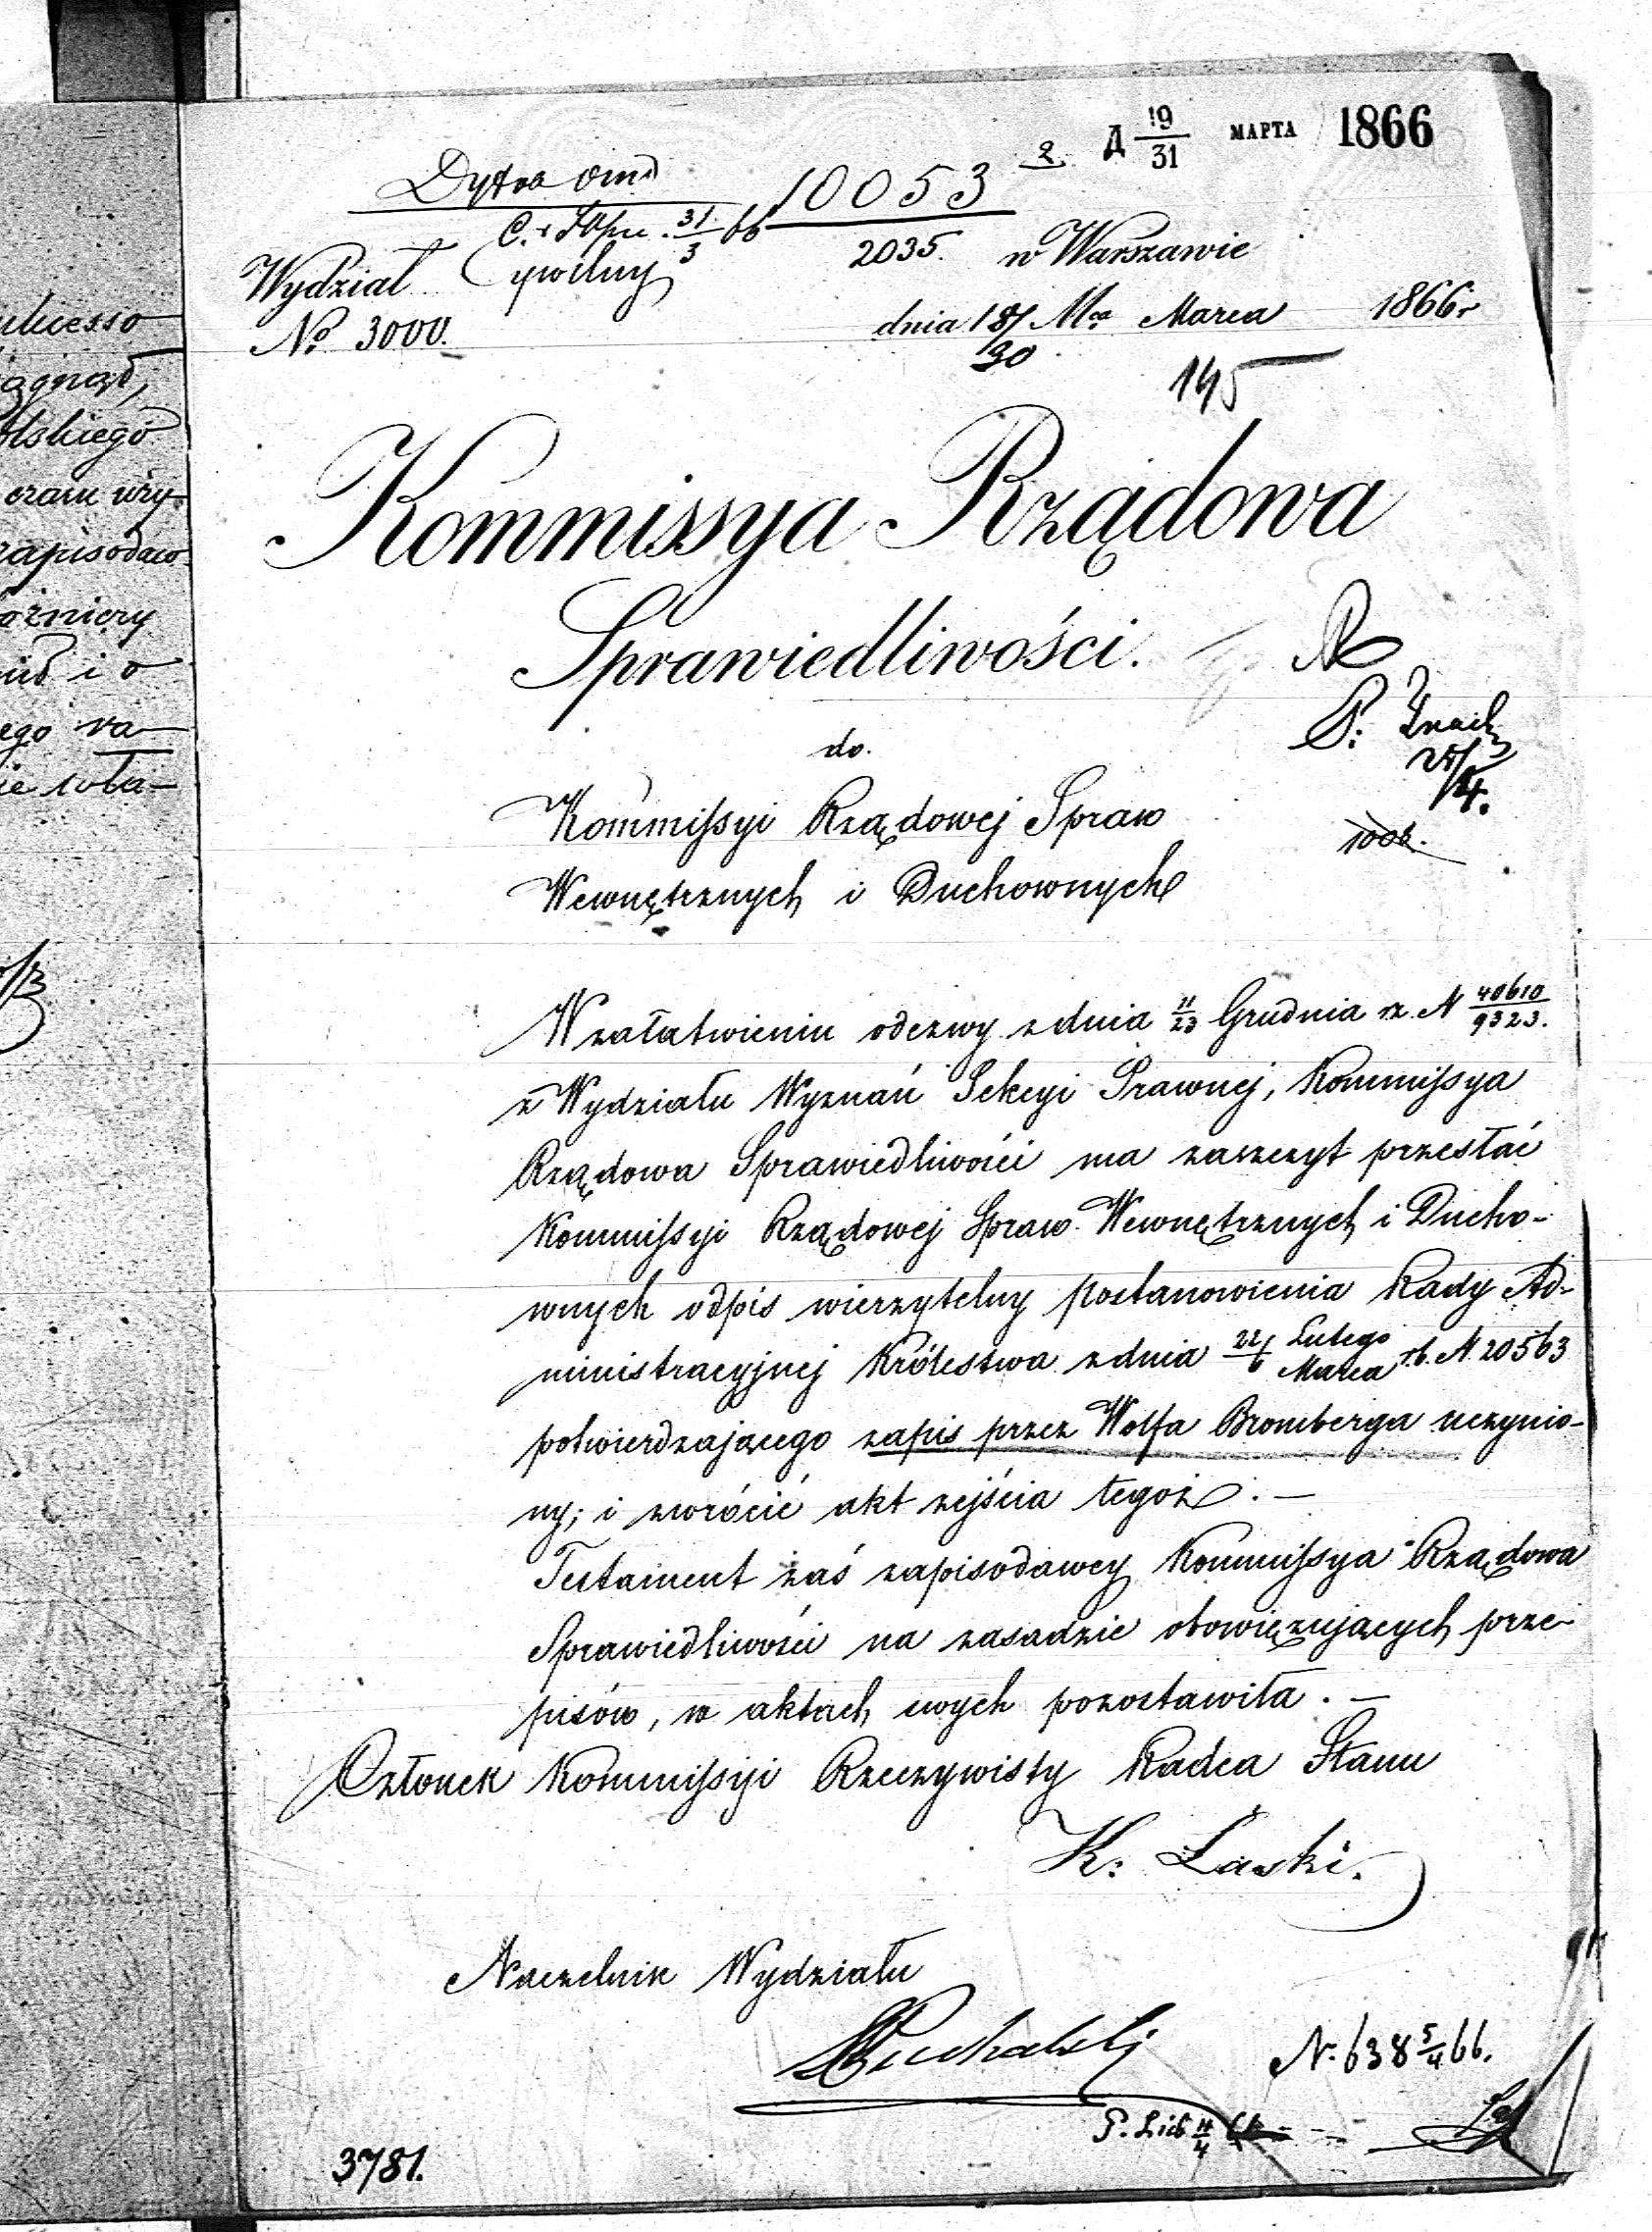 ukcesso
Д 19/31 МАРТА 1866
10053 2
2035.
C. 31/3 66
Wydział Cywilny
w Warszawie
№ 3000.
dnia 18/30 Mca Marca 1866 r
145
Kommissya Rządowa
Sprawiedliwości.
do.
P. Znach
Kommissyi Rządowej Spraw
Wewnętrznych i Duchownych
W załatwieniu odezwy z dnia 11/23 Grudnia rz. N 40610/9323.
z Wydziału Wyznań Sekcyi Prawnej, Kommissya
Rządowa Sprawiedliwości ma zaszczyt przesłać
Kommissyi Rządowej Spraw Wewnętrznych i Ducho-
wnych odpis wierzytelny postanowienia Rady Ad-
ministracyjnej Królestwa z dnia 22 Lutego/6 Marca r.b. N. 20563
potwierdzającego zapis przez Wolfa Bromberga uczynio-
ny; i zwrócić akt zejścia tegoż. —
Testament zaś zapisodawcy Kommissya Rządowa
Sprawiedliwości na zasadzie obowięzujących prze-
pisów, w aktach swych pozostawiła. —
Członek Kommissyi Rzeczywisty Radca Stanu
K: Łaski.
Naczelnik Wydziału
Puchalski
N. 638 5/4 66.
3781.
ągnąć,
lskiego
czasu uży-
zapisodaw
nie i o
ego wa